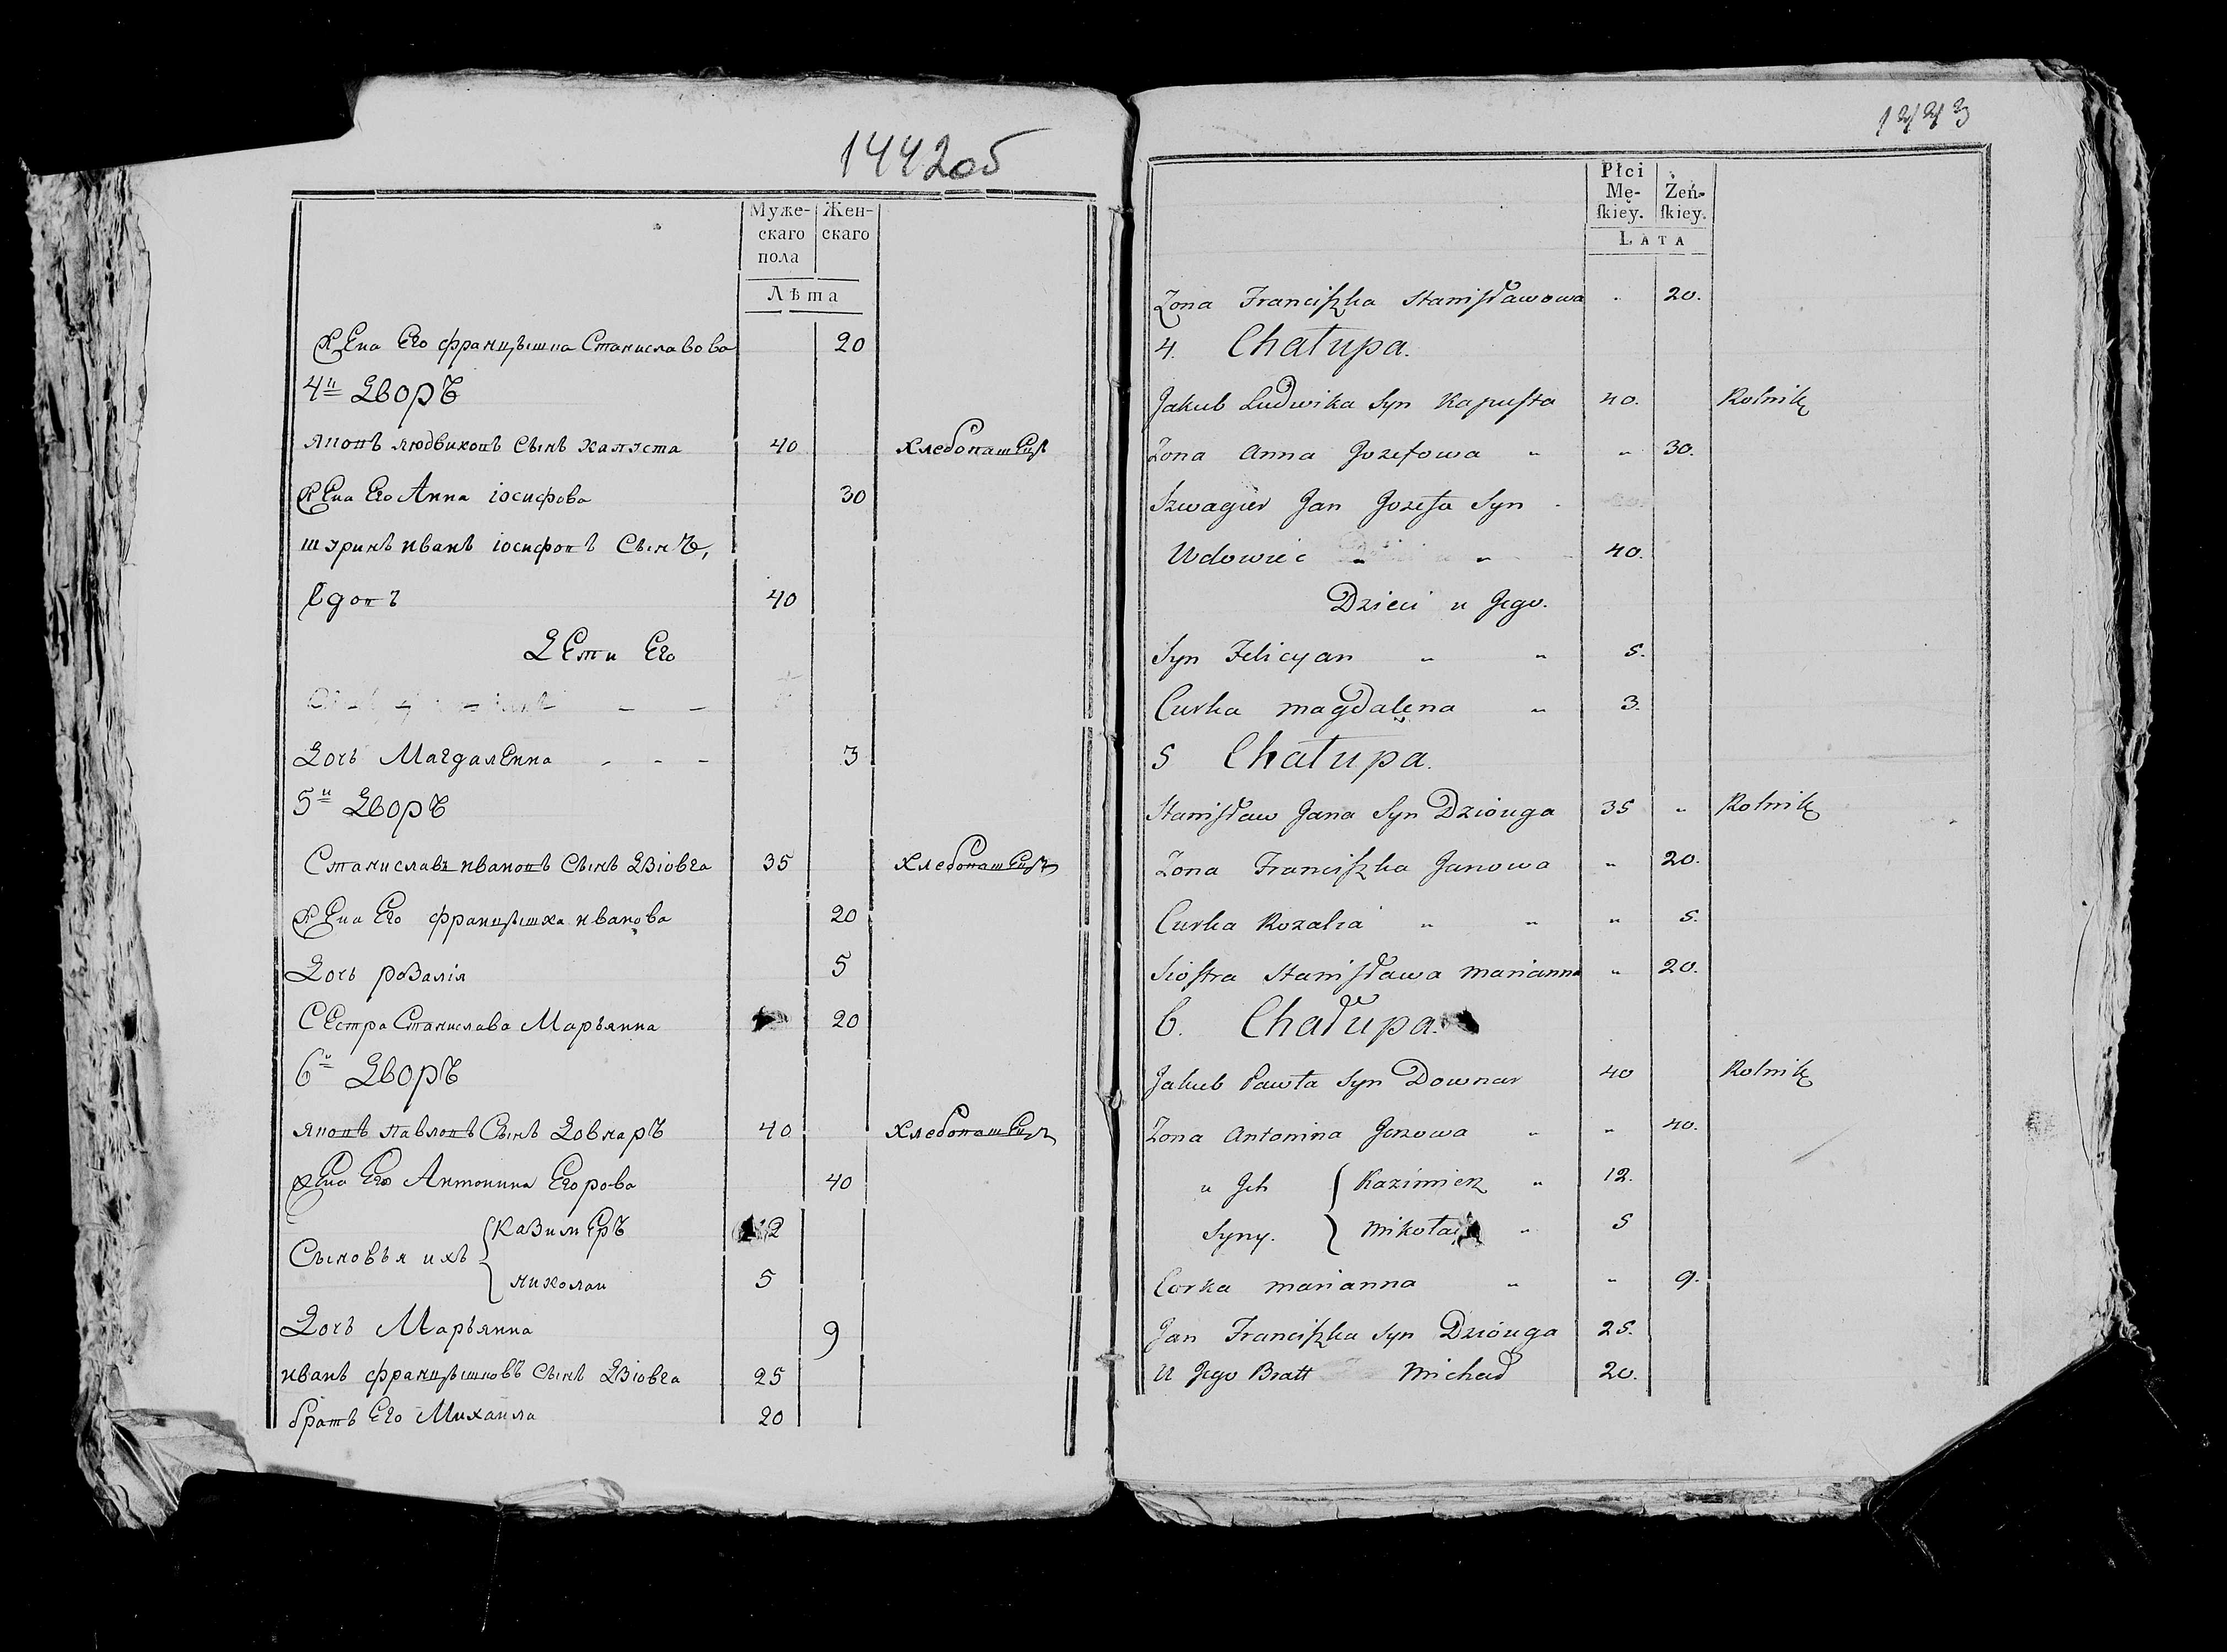 1442об
Муже-
скаго
пола
Жен-
скаго
Лѣта
Жена Его францышка Станиславова 20
4й Дворъ
Якопъ людвикопъ Сынъ капуста 40 Хлебопашецъ
Жена Его Анна іосифова 30
шуринъ иванъ іосифопъ Сынъ,
вдопъ 40
Дети Его
Дочь Магдаленна - - - 3
5й Дворъ
Станиславъ иванопъ Сынъ Дзіовга 35 Хлебопашецъ
Жена Его францышка иванова 20
Дочь розалія 5
Сестра Станислава Марьянна 20
6й Дворъ
Якопъ павлопъ Сынъ Довнаръ 40 Хлебопашецъ
Жена Его Антонина Егорова 40
Сыновья ихъ { Казимеръ 12
николаи 5
Дочь Марьянна 9
иванъ францышковъ Сынъ Дзіовга 25
братъ Его Михаила 20
1443
Płci
Mę-
ſkiey.
Żeń-
ſkiey.
LATA
Zona Franciſzka Staniſławowa . 20.
4. Chałupa.
Jakub Ludwika Syn Kapuſta 40. Rolnik
Zona Anna Jozefowa " " 30.
Szwagier Jan Jozefa Syn -
Wdowiec " " 40.
Dzieci u Jego.
Syn Felicyan " " 5.
Curka Magdalena " 3.
5 Chałupa.
Staniſław Jana Syn Dziouga 35 " Rolnik
Zona Franciſzka Janowa " 20.
Curka Rozalia " " " 5.
Sioſtra Staniſława Marianna " 20.
6. Chałupa.
Jakub Pawła Syn Downar 40 Rolnik
Zona Antonina Jerzowa " " 40.
u Jch { Kazimierz " 12.
Syny. Mikołaj " 5
Corka Marianna " " 9.
Jan Franciſzka Syn Dziouga 25.
U Jego Bratt Michał 20.